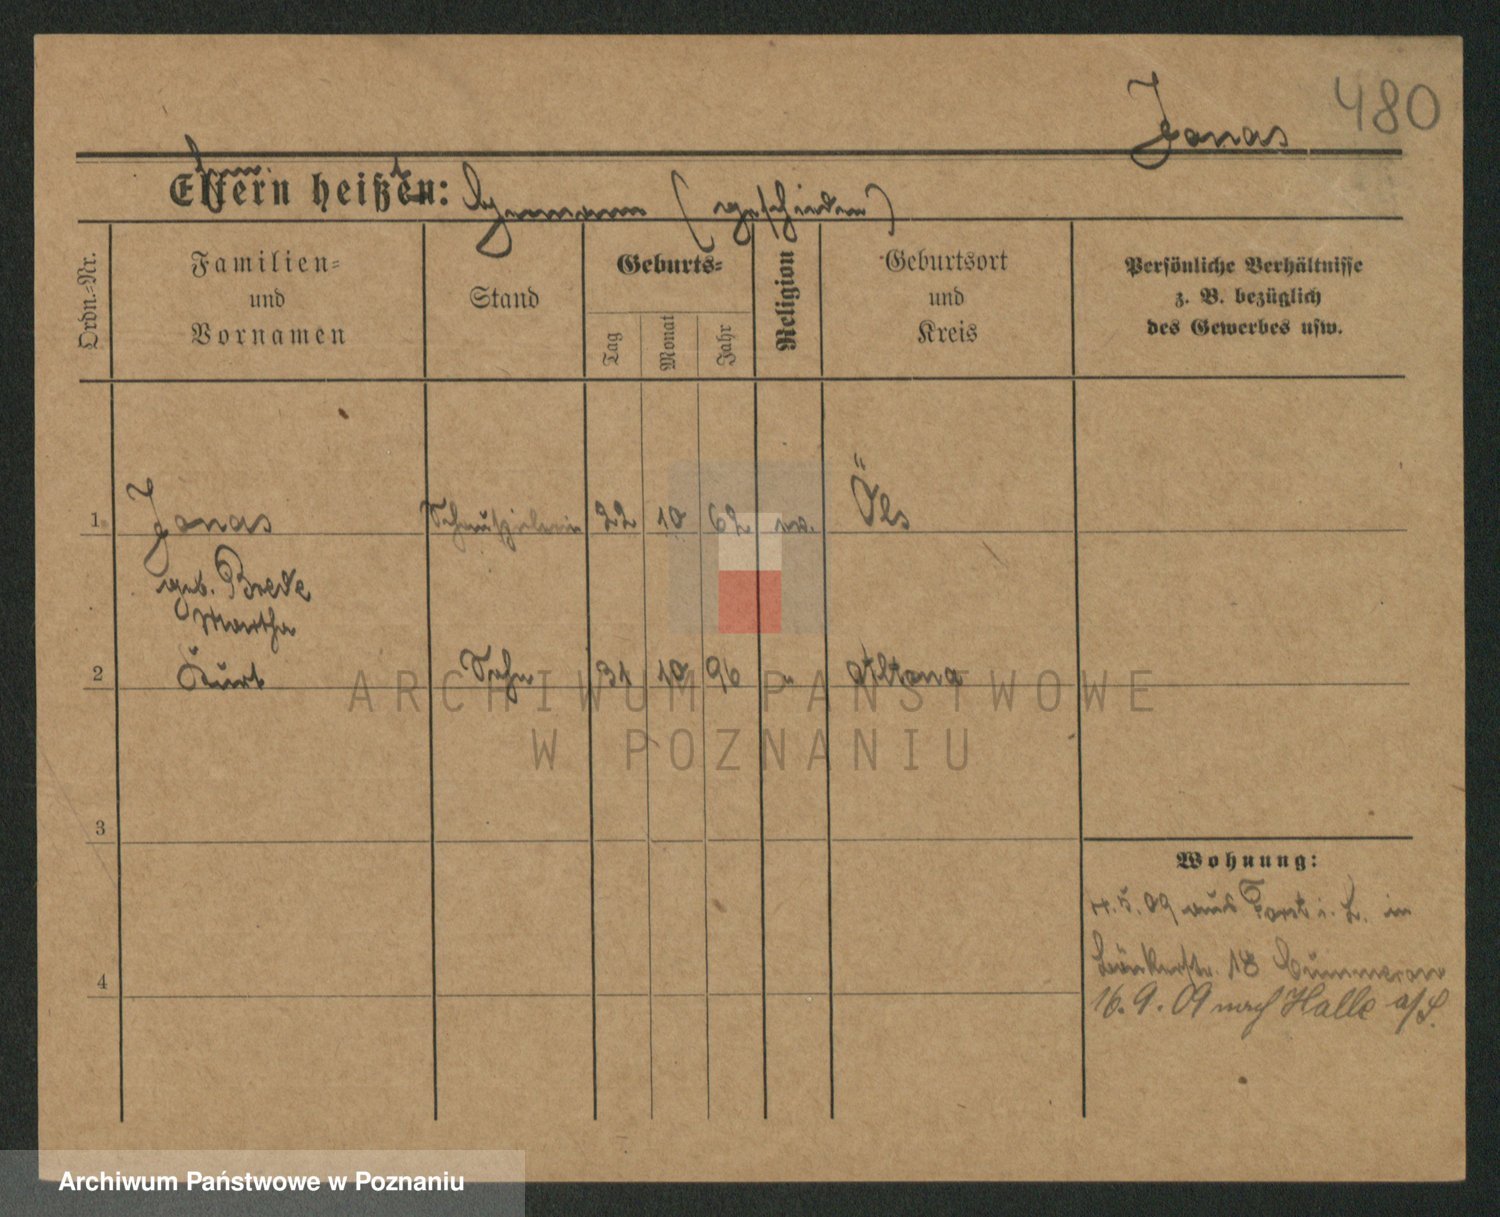 Jonas 480
Eltern heißen: (geschieden)
Ordn.-Nr.
Familien-
und
Vornamen
Stand
Geburts-
Tag
Monat
Jahr
Religion
Geburtsort
und
Kreis
Persönliche Verhältnisse
z. B. bezüglich
des Gewerbes usw.
1 Jonas Schauspielerin 22 10 62 ev. Öls
geb. Brede
Martha
2 Kurt Sohn 31 10 96 " Altona
ARCHIWUM PAŃSTWOWE
W POZNANIU
3
Wohnung:
5. 09 aus Forst i. L. in
18
4
16. 9. 09 nach Halle a/S.
Archiwum Państwowe w Poznaniu